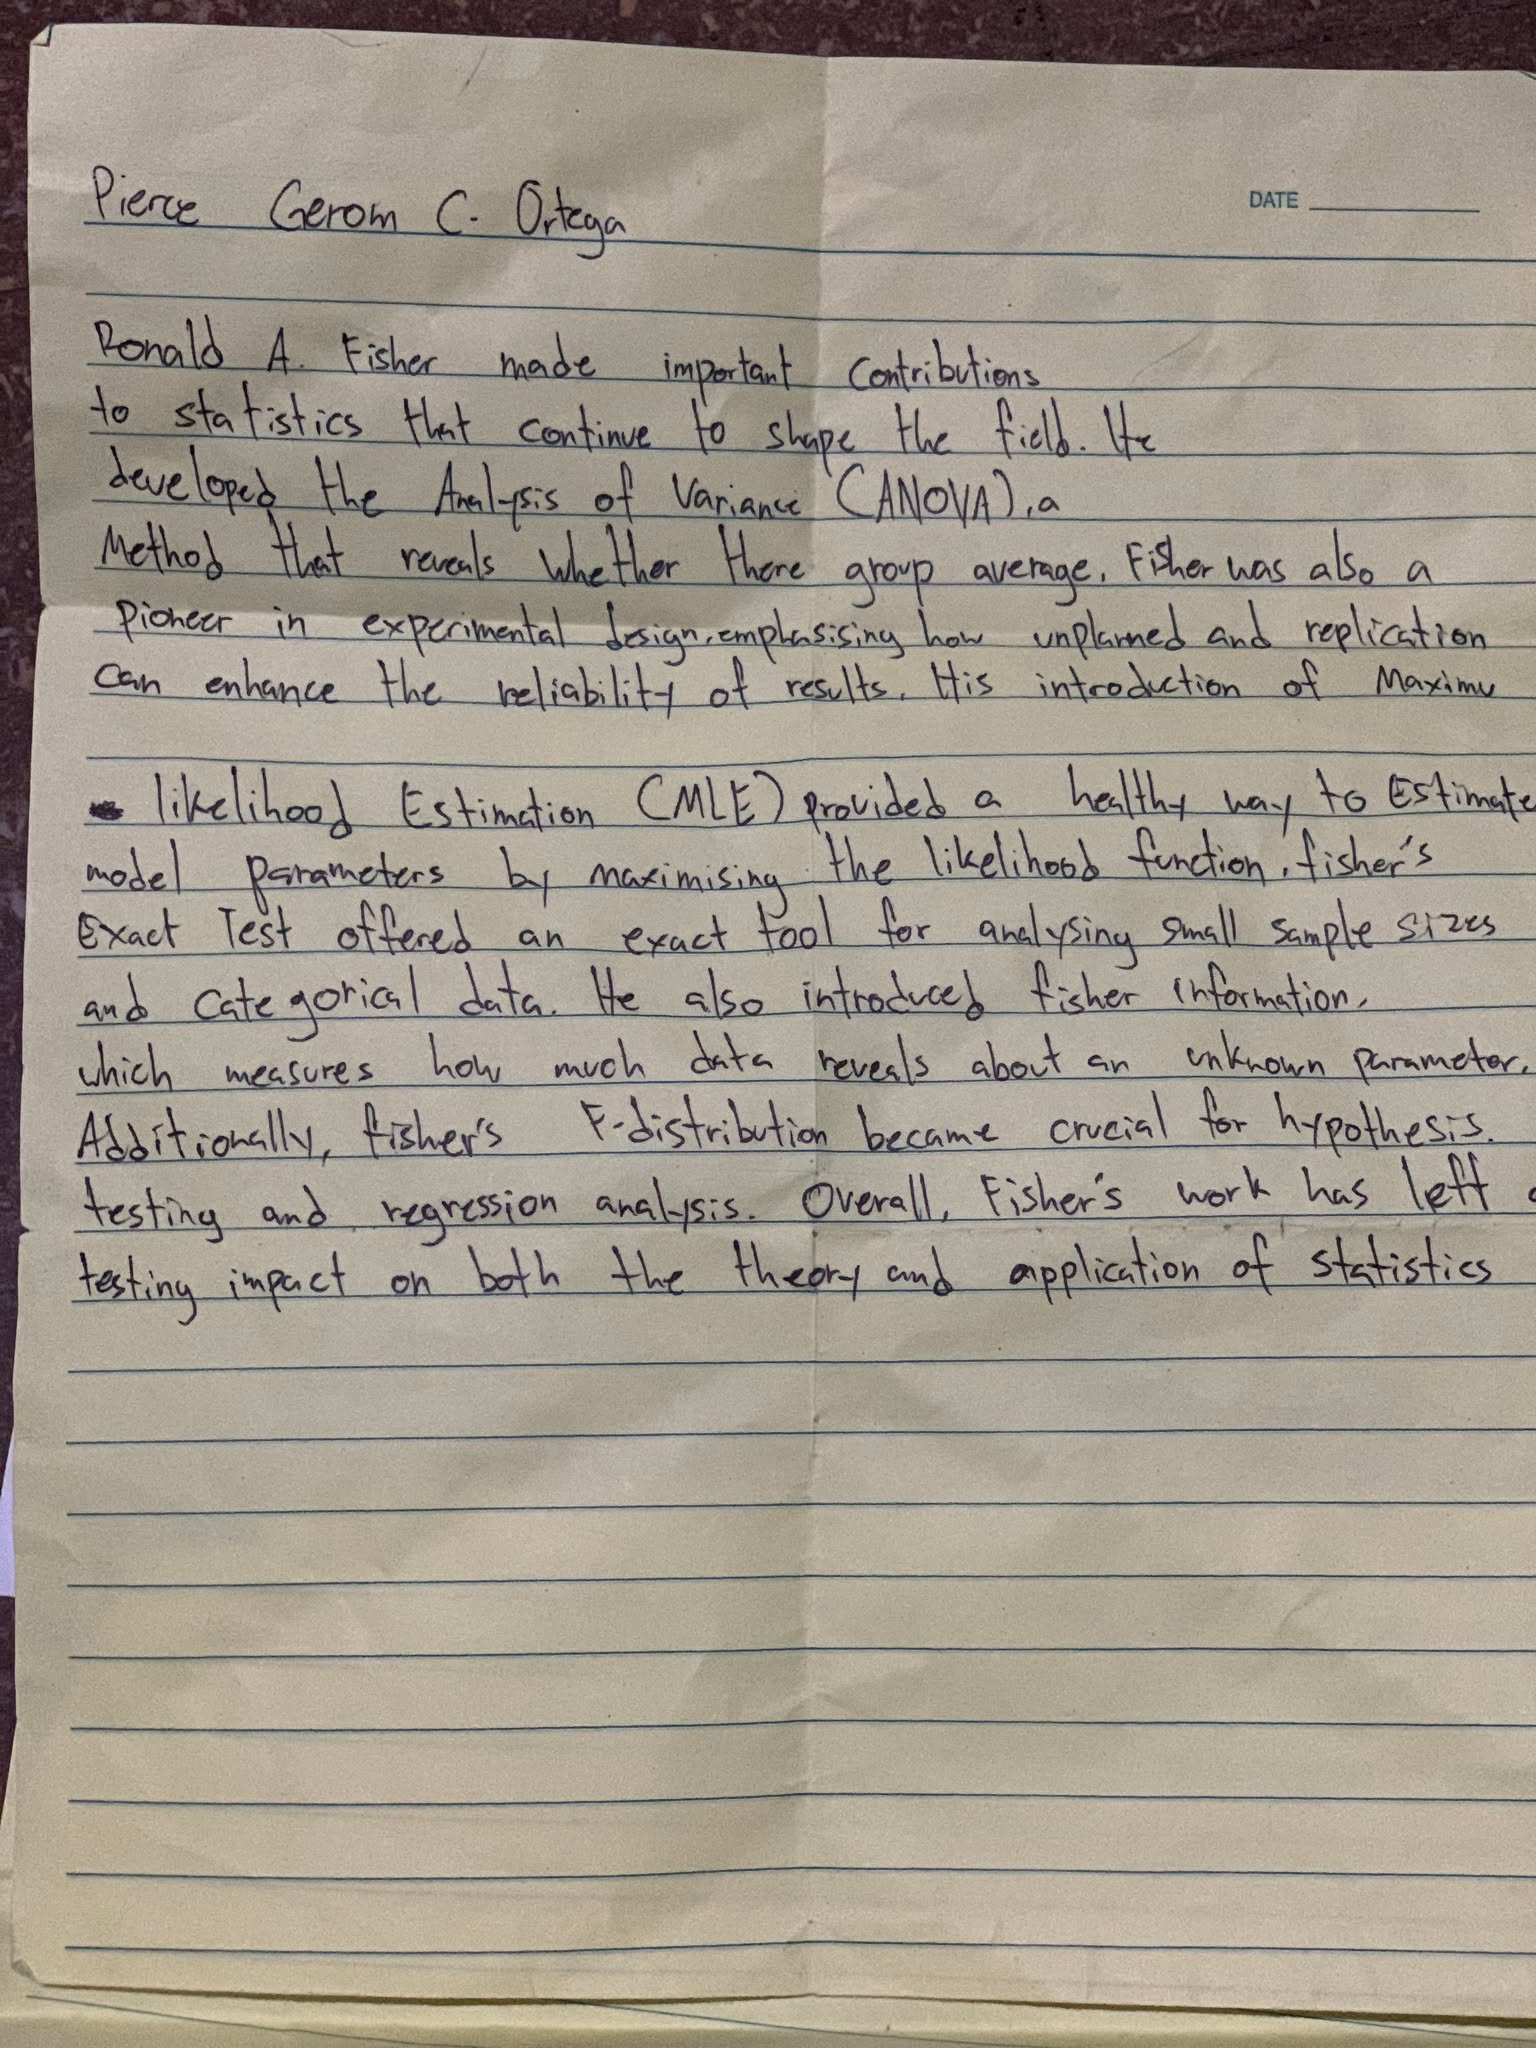 Pierce Gerom C. Ortega
DATE
Ronald A. Fisher made important contributions
to statistics that continue to shape the field. He
developed the Analysis of Variance (ANOVA), a
Method that reveals whether there group average. Fisher was also a
pioneer in experimental design, emphasising how unplanned and replication
can enhance the reliability of results. His introduction of Maximu
likelihood Estimation (MLE) provided a healthy way to Estimate
model parameters by maximising the likelihood function, fisher's
Exact Test offered an exact tool for analysing small sample sizes
and categorical data. He also introduced fisher information,
which measures how much data reveals about an unknown parameter.
Additionally, fisher's F-distribution became crucial for hypothesis.
testing and regression analysis. Overall, Fisher's work has left a
testing impact on both the theory and application of statistics